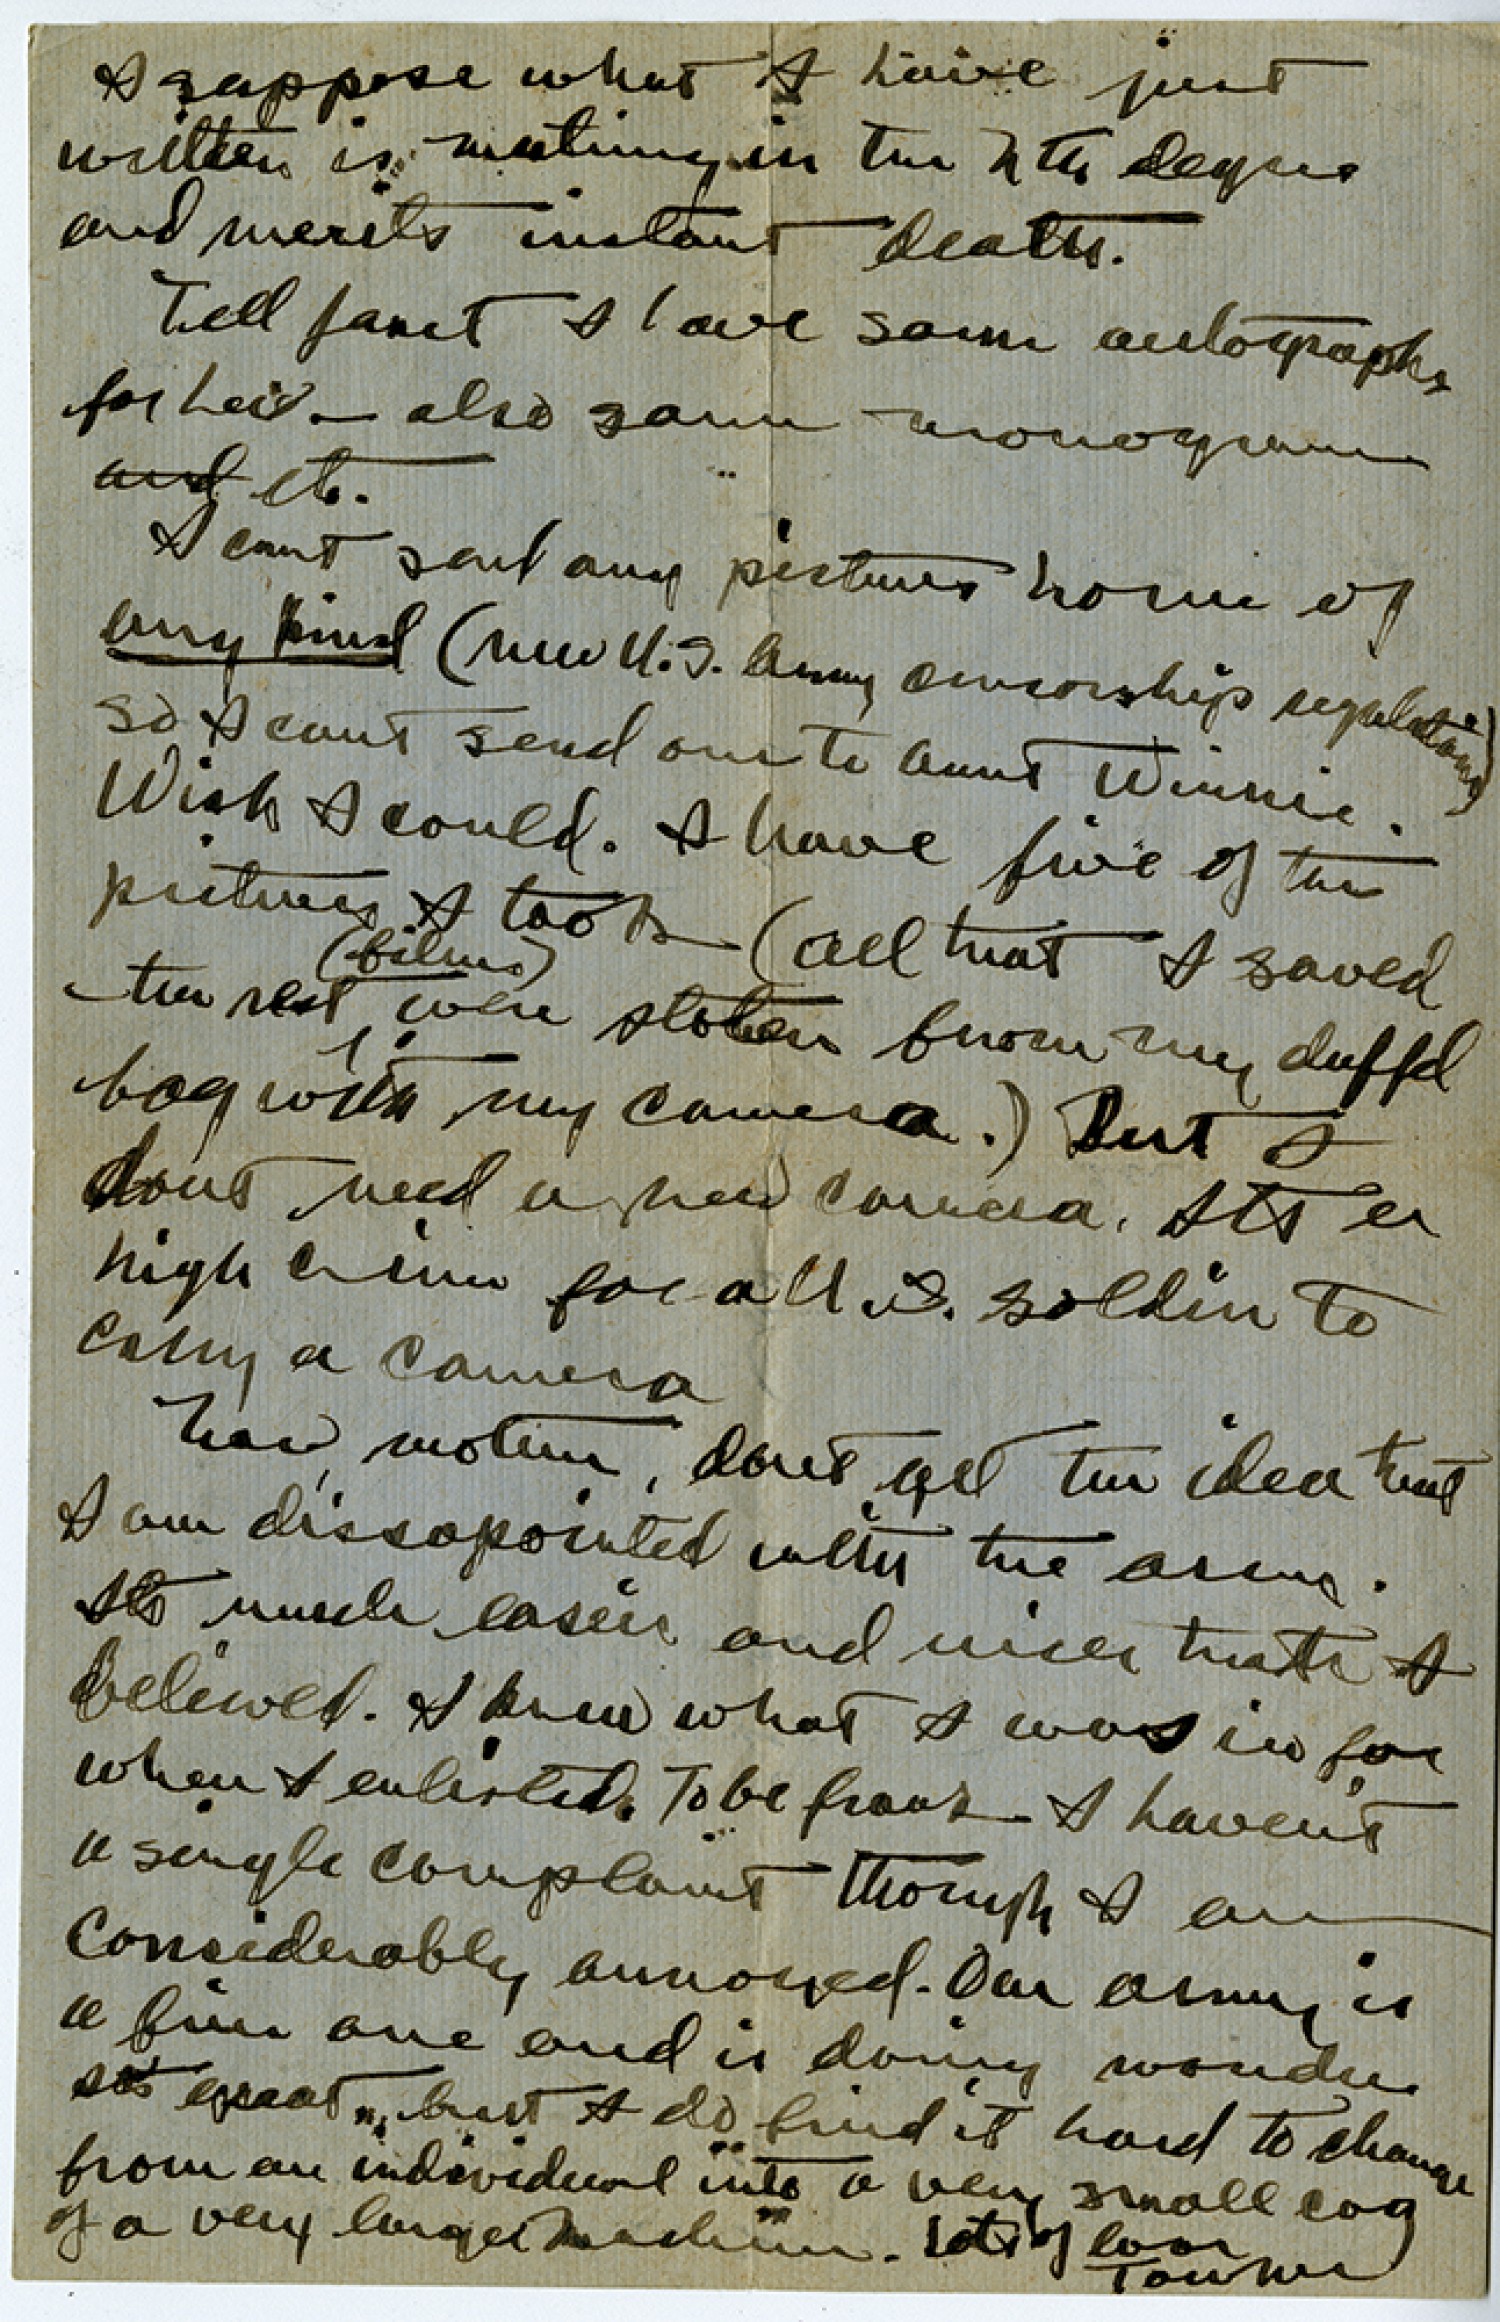 I suppose what I have just
written is mutiny in the nth degree
and merits instant death.
Tell Janet I have some autographs
for her — also some monograms
and etc.
I cant send any pictures home of
any kind (new U.S. Army censorship regulations)
so I cant send one to Aunt Winnie.
Wish I could. I have five of the
pictures I took — (all that I saved
(films)
— the rest were stolen from my duffel
bag with my camera.) But I
dont need a new camera. Its a
high crime for a U.S. soldier to
carry a camera
Now, mother, dont get the idea that
I am dissapointed with the army.
Its much easier and nicer than I
believed. I knew what I was in for
when I enlisted. To be frank I haven't
a single complaint though I am
considerably annoyed. Our army is
a fine one and is doing wonders
great, but I do find it hard to change
from an individual into a very small cog
of a very large machine. Lots of love
Towner